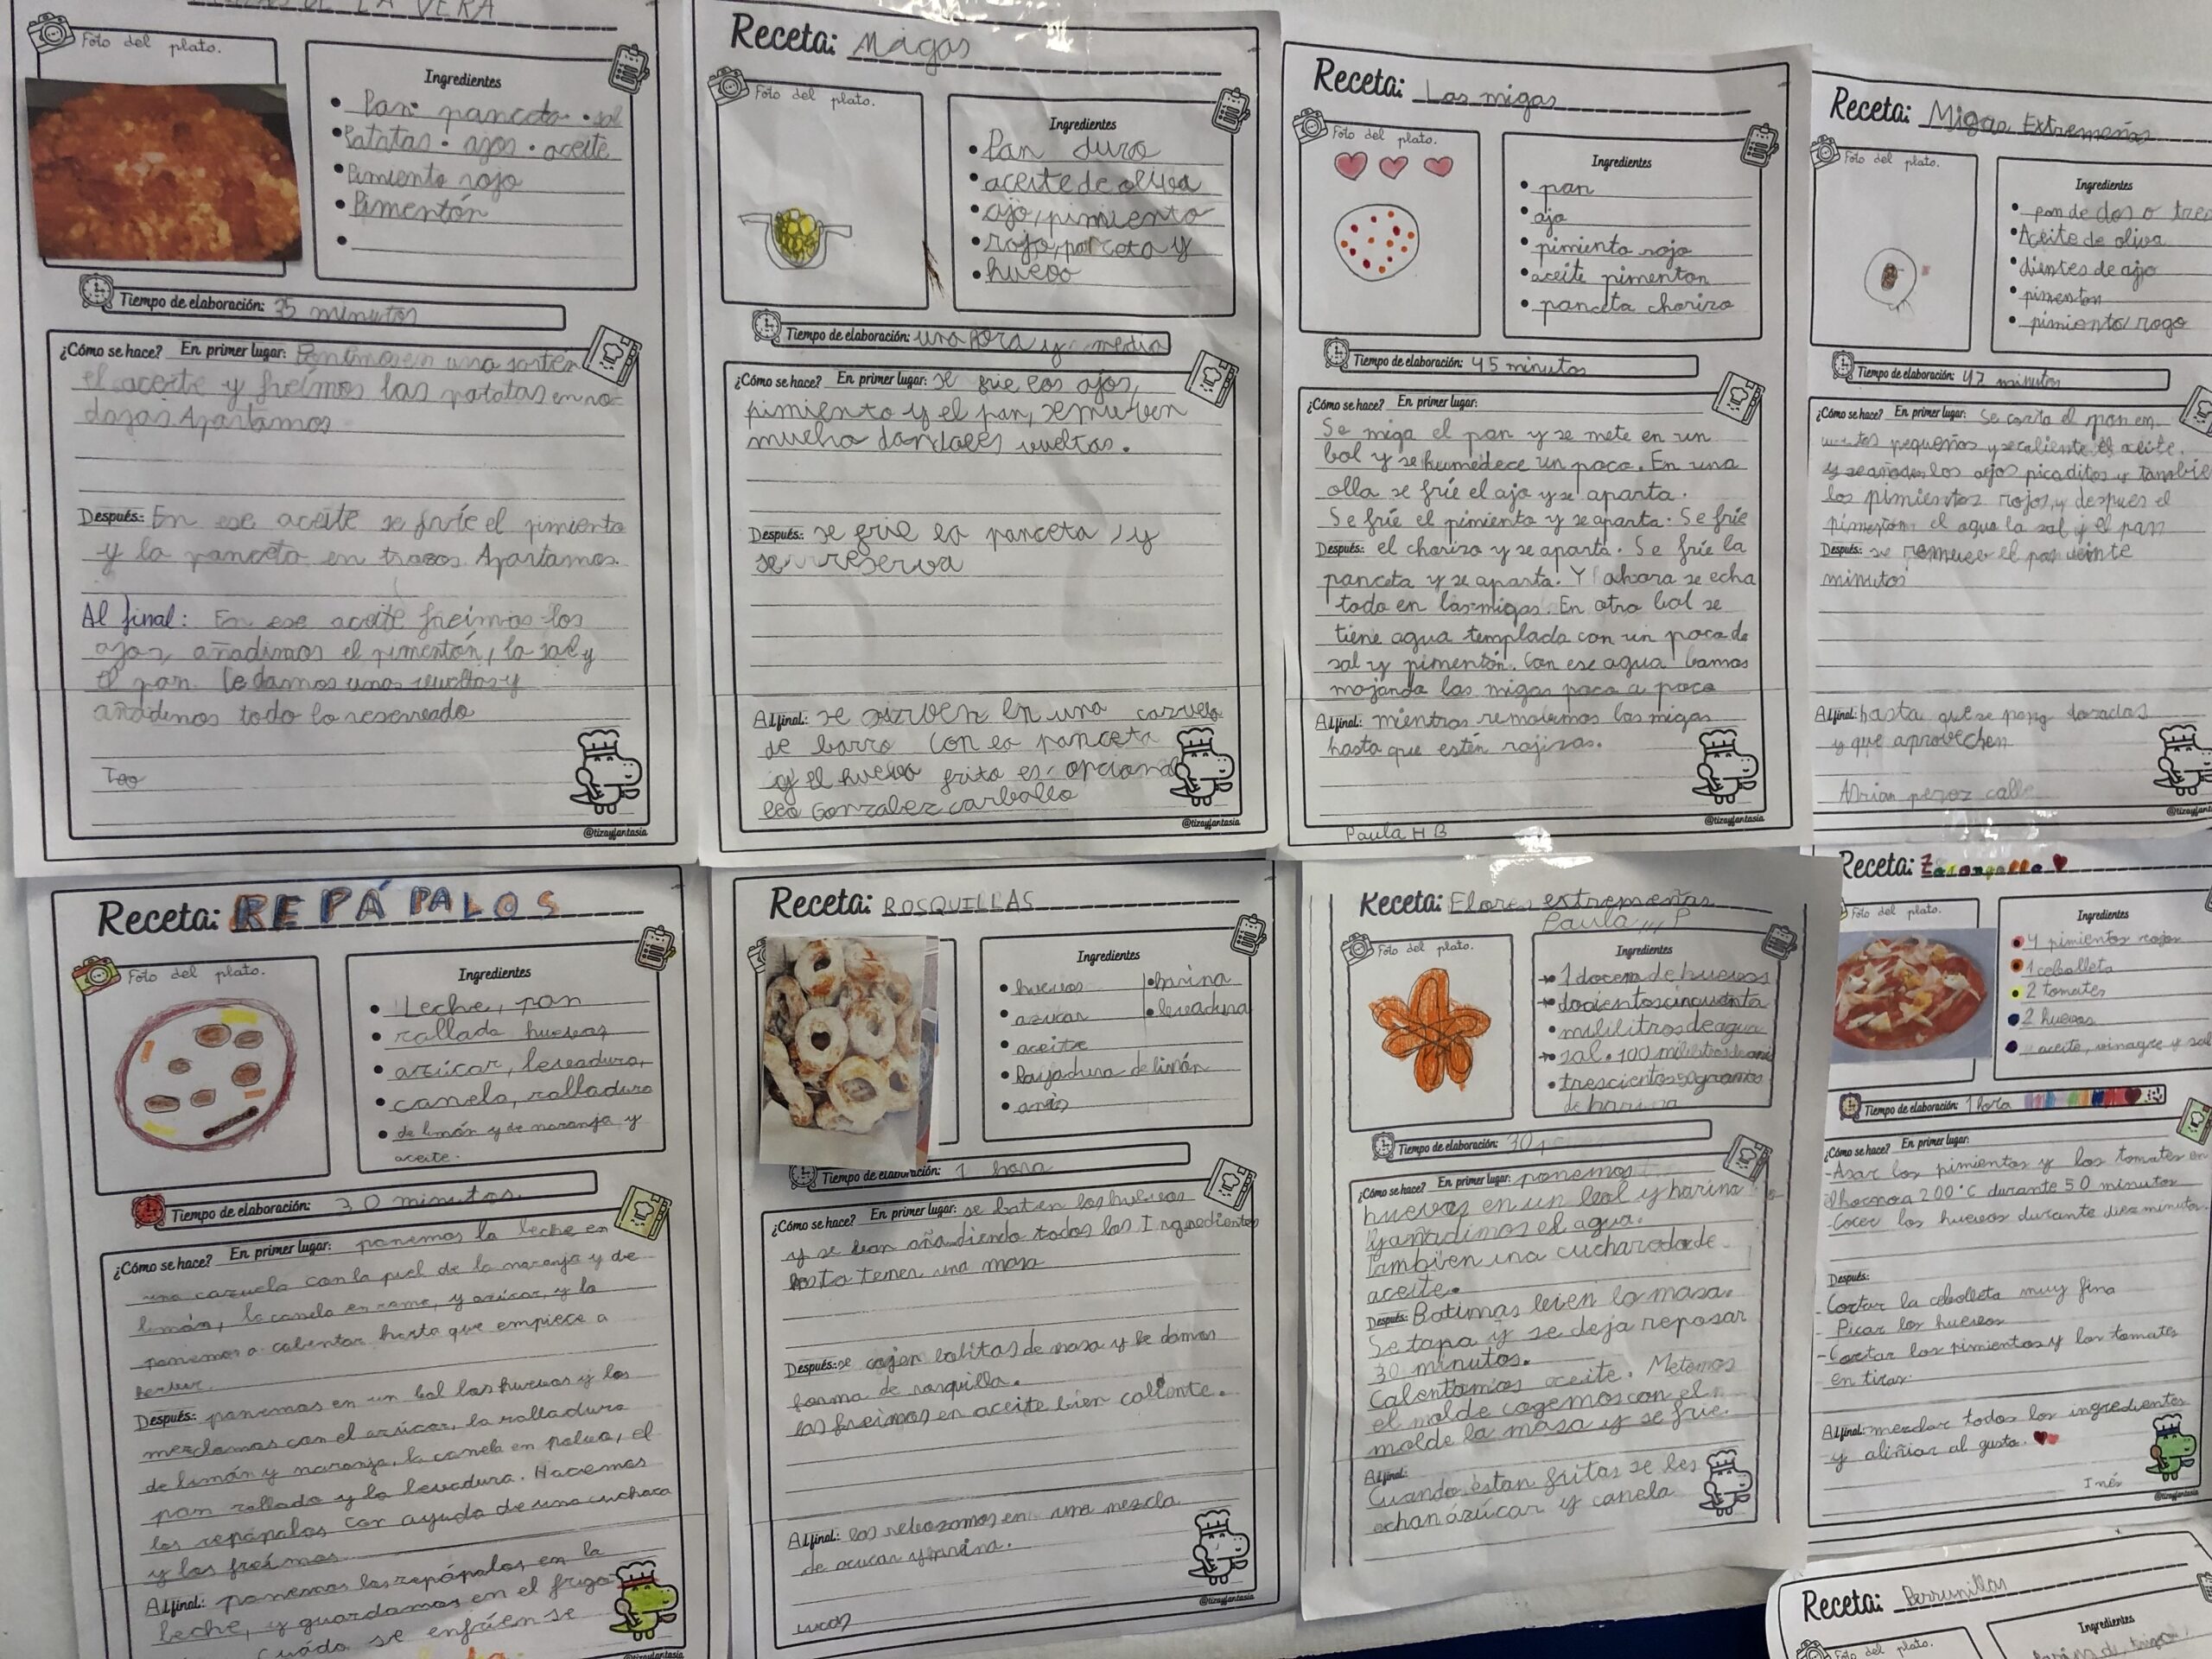 DE LA VERA
Foto del plato.
Ingredientes
Pan · panceta · sal
Patatas · ajos · aceite
Pimiento rojo
Pimentón
Tiempo de elaboración: 35 minutos
¿Cómo se hace? En primer lugar: Ponemos en una sartén
el aceite y freímos las patatas en ro-
dajas. Apartamos
Después: En ese aceite se fríe el pimiento
y la panceta en trozos. Apartamos.
Al final: En ese aceite freímos los
ajos, añadimos el pimentón, la sal y
el pan. Le damos unas vueltas y
añadimos todo lo reservado
Teo
@tizayfantasia
Receta: Migas
Foto del plato.
Ingredientes
Pan duro
aceite de oliva
ajo, pimiento
rojo, panceta y
huevo
Tiempo de elaboración: una hora y media
¿Cómo se hace? En primer lugar: se frie los ajos,
pimiento y el pan, se mueven
mucho vueltas.
Después: se frie la panceta y
se reserva
Al final: se sirven en una cazuela
de barro con la panceta
y el huevo frito es opcional
Leo Gonzalez carballo
@tizayfantasia
Receta: Las migas
Foto del plato.
Ingredientes
pan
ajo
pimiento rojo
aceite pimenton
panceta chorizo
Tiempo de elaboración: 45 minutos
¿Cómo se hace? En primer lugar:
Se miga el pan y se mete en un
bol y se humedece un poco. En una
olla se fríe el ajo y se aparta.
Se fríe el pimiento y se aparta. Se fríe
Después: el chorizo y se aparta. Se fríe la
panceta y se aparta. Y ahora se echa
todo en las migas. En otro bol se
tiene agua templada con un poco de
sal y pimentón. Con ese agua bamos
mojando las migas poco a poco
Al final: mientras removemos las migas
hasta que estén rojizas.
Paula H B
@tizayfantasia
Receta: Migas Extremeñas
Foto del plato.
Ingredientes
pan de dos o tres
Aceite de oliva
dientes de ajo
pimenton
pimiento rogo
Tiempo de elaboración: 47 minutos
¿Cómo se hace? En primer lugar: Se corta el pan en
pequeños y se caliente el aceite.
y se añade los ajos picaditos y tambie
los pimientos rojos, y despues el
pimenton el agua la sal y el pan
Después: se remueve el pan veinte
minutos
Al final: hasta que se pong doradas
y que aprovechen
Adrian perez calle
@tizayfantasia
Receta: REPÁPALOS
Foto del plato.
Ingredientes
Leche, pan
rallado huevos,
azúcar, levadura,
canela, ralladura
de limón y de naranja y
aceite.
Tiempo de elaboración: 30 minutos.
¿Cómo se hace? En primer lugar: ponemos la leche en
una cazuela con la piel de la naranja y de
limón, la canela en rama, y azúcar, y la
ponemos a calentar hasta que empiece a
hervir.
Después: ponemos en un bol los huevos y los
mezclamos con el azúcar, la ralladura
de limón y naranja, la canela en polvo, el
pan rallado y la levadura. Hacemos
los repápalos con ayuda de una cuchara
y los freímos.
Al final: ponemos los repápalos en la
leche, y guardamos en el frigo
Cuándo se enfríen se
Receta: ROSQUILLAS
Ingredientes
huevos
harina
azucar
levadura
aceite
Rayadura de limón
anís
Tiempo de elaboración: 1 hora
¿Cómo se hace? En primer lugar: se baten los huevos
y se van añadiendo todos los Ingredientes
hasta tener una masa
Después: se cojen bolitas de masa y le damos
forma de rosquilla.
las freímos en aceite bien caliente.
Al final: las rebozamos en una mezcla
de azucar y harina.
Lucas
@tizayfantasia
Receta: Flores extremeñas
Paula P
Foto del plato.
Ingredientes
1 docena de huevos
docientos cincuenta
mililitros de agua
sal. 100 mililitros de
trescientos 50 gramos
de harina
Tiempo de elaboración: 30
¿Cómo se hace? En primer lugar: ponemos
huevos en un bol y harina
y añadimos el agua.
Tambien una cucharada de
aceite.
Después: Batimas bien la masa.
Se tapa y se deja reposar
30 minutos.
Calentamos aceite. Metemos
el molde cogemos con el
molde la masa y se frie.
Al final:
Cuando estan fritas se les
echan azúcar y canela
Receta: Zarangollo
Foto del plato.
Ingredientes
4 pimientos rojos
1 cebolleta
2 tomates
2 huevos
aceite, vinagre y sal
Tiempo de elaboración: 1 hora
¿Cómo se hace? En primer lugar:
-Asar los pimientos y los tomates en
el horno a 200°C durante 50 minutos
-Cocer los huevos durante diez minutos.
Después:
-Cortar la cebolleta muy fina
-Picar los huevos
-Cortar los pimientos y los tomates
en tiras.
Al final: mezclar todos los ingredientes
y aliñiar al gusto.
Inés
@tizayfantasia
Receta: Perrunillas
Foto del plato.
Ingredientes